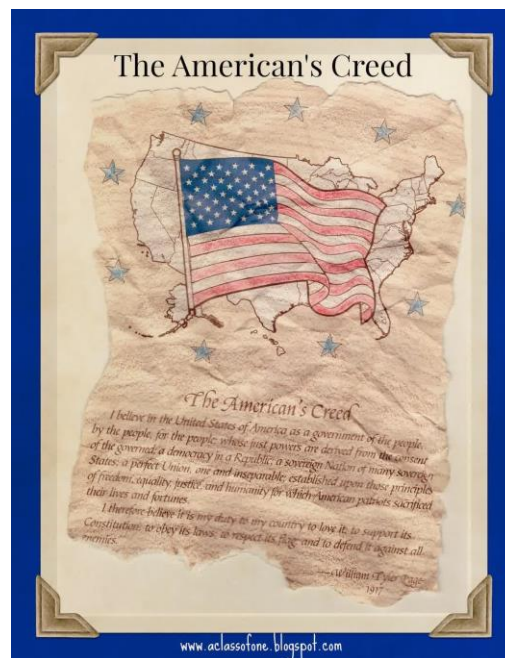 The American's Creed
The American's Creed
I believe in the United States of America as a government of the people,
by the people, for the people; whose just powers are derived from the consent
of the governed; a democracy in a Republic; a sovereign Nation of many sovereign
States; a perfect Union, one and inseparable; established upon those principles
of freedom, equality, justice, and humanity for which American patriots sacrificed
their lives and fortunes.
I therefore believe it is my duty to my country to love it; to support its
Constitution; to obey its laws; to respect its flag; and to defend it against all
enemies.
—William Tyler Page
1917
www.aclassofone.blogspot.com